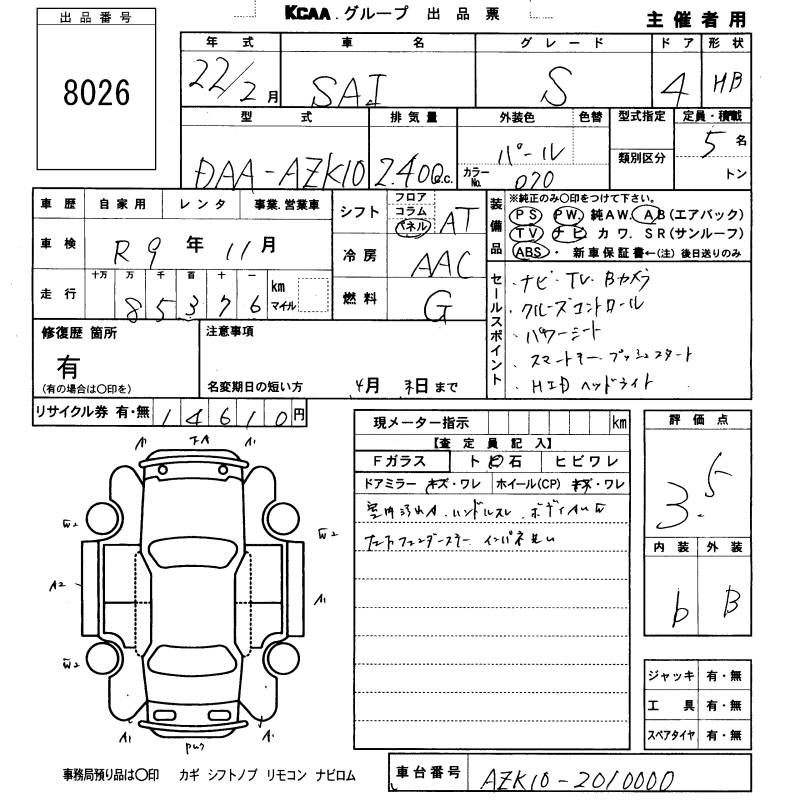 KCAA グループ 出品票
主催者用
出品番号
8026
年式 車名 グレード ドア 形状
22/2月 SAI S 4 HB
型式 排気量 外装色 色替 型式指定 定員・積載
DAA-AZK10 2.400c.c. パール カラーNo. 070 類別区分 5名 トン
車歴 自家用 レンタ 事業.営業車
車検 R9年11月
走行 十万 万 千 百 十 一 km マイル
85376
シフト フロア コラム パネル AT
冷房 AAC
燃料 G
装備品 ※純正のみ○印をつけて下さい。
PS PW 純AW. AB(エアバック)
TV ナビ カワ. SR(サンルーフ)
ABS ・ 新車保証書←(注) 後日送りのみ
セールスポイント
・ナビ・TV・Bカメラ
・クルーズコントロール
・パワーシート
・スマートキー・プッシュスタート
・HIDヘッドライト
修復歴 箇所
有
(有の場合は○印を)
注意事項
名変期日の短い方 月 日まで
リサイクル券 有・無 14610円
現メーター指示 km
【査定員記入】
Fガラス トビ石 ヒビワレ
ドアミラー キズ・ワレ ホイール(CP) キズ・ワレ
室内汚れA.ハンドルスレ.ボディAUW
評価点
3.5
内装 外装
b B
ジャッキ 有・無
工具 有・無
スペアタイヤ 有・無
A1 A1
W2 W2
A2 A1
W2 W2
A1 A1
事務局預り品は○印 カギ シフトノブ リモコン ナビロム
車台番号 AZK10-2010000